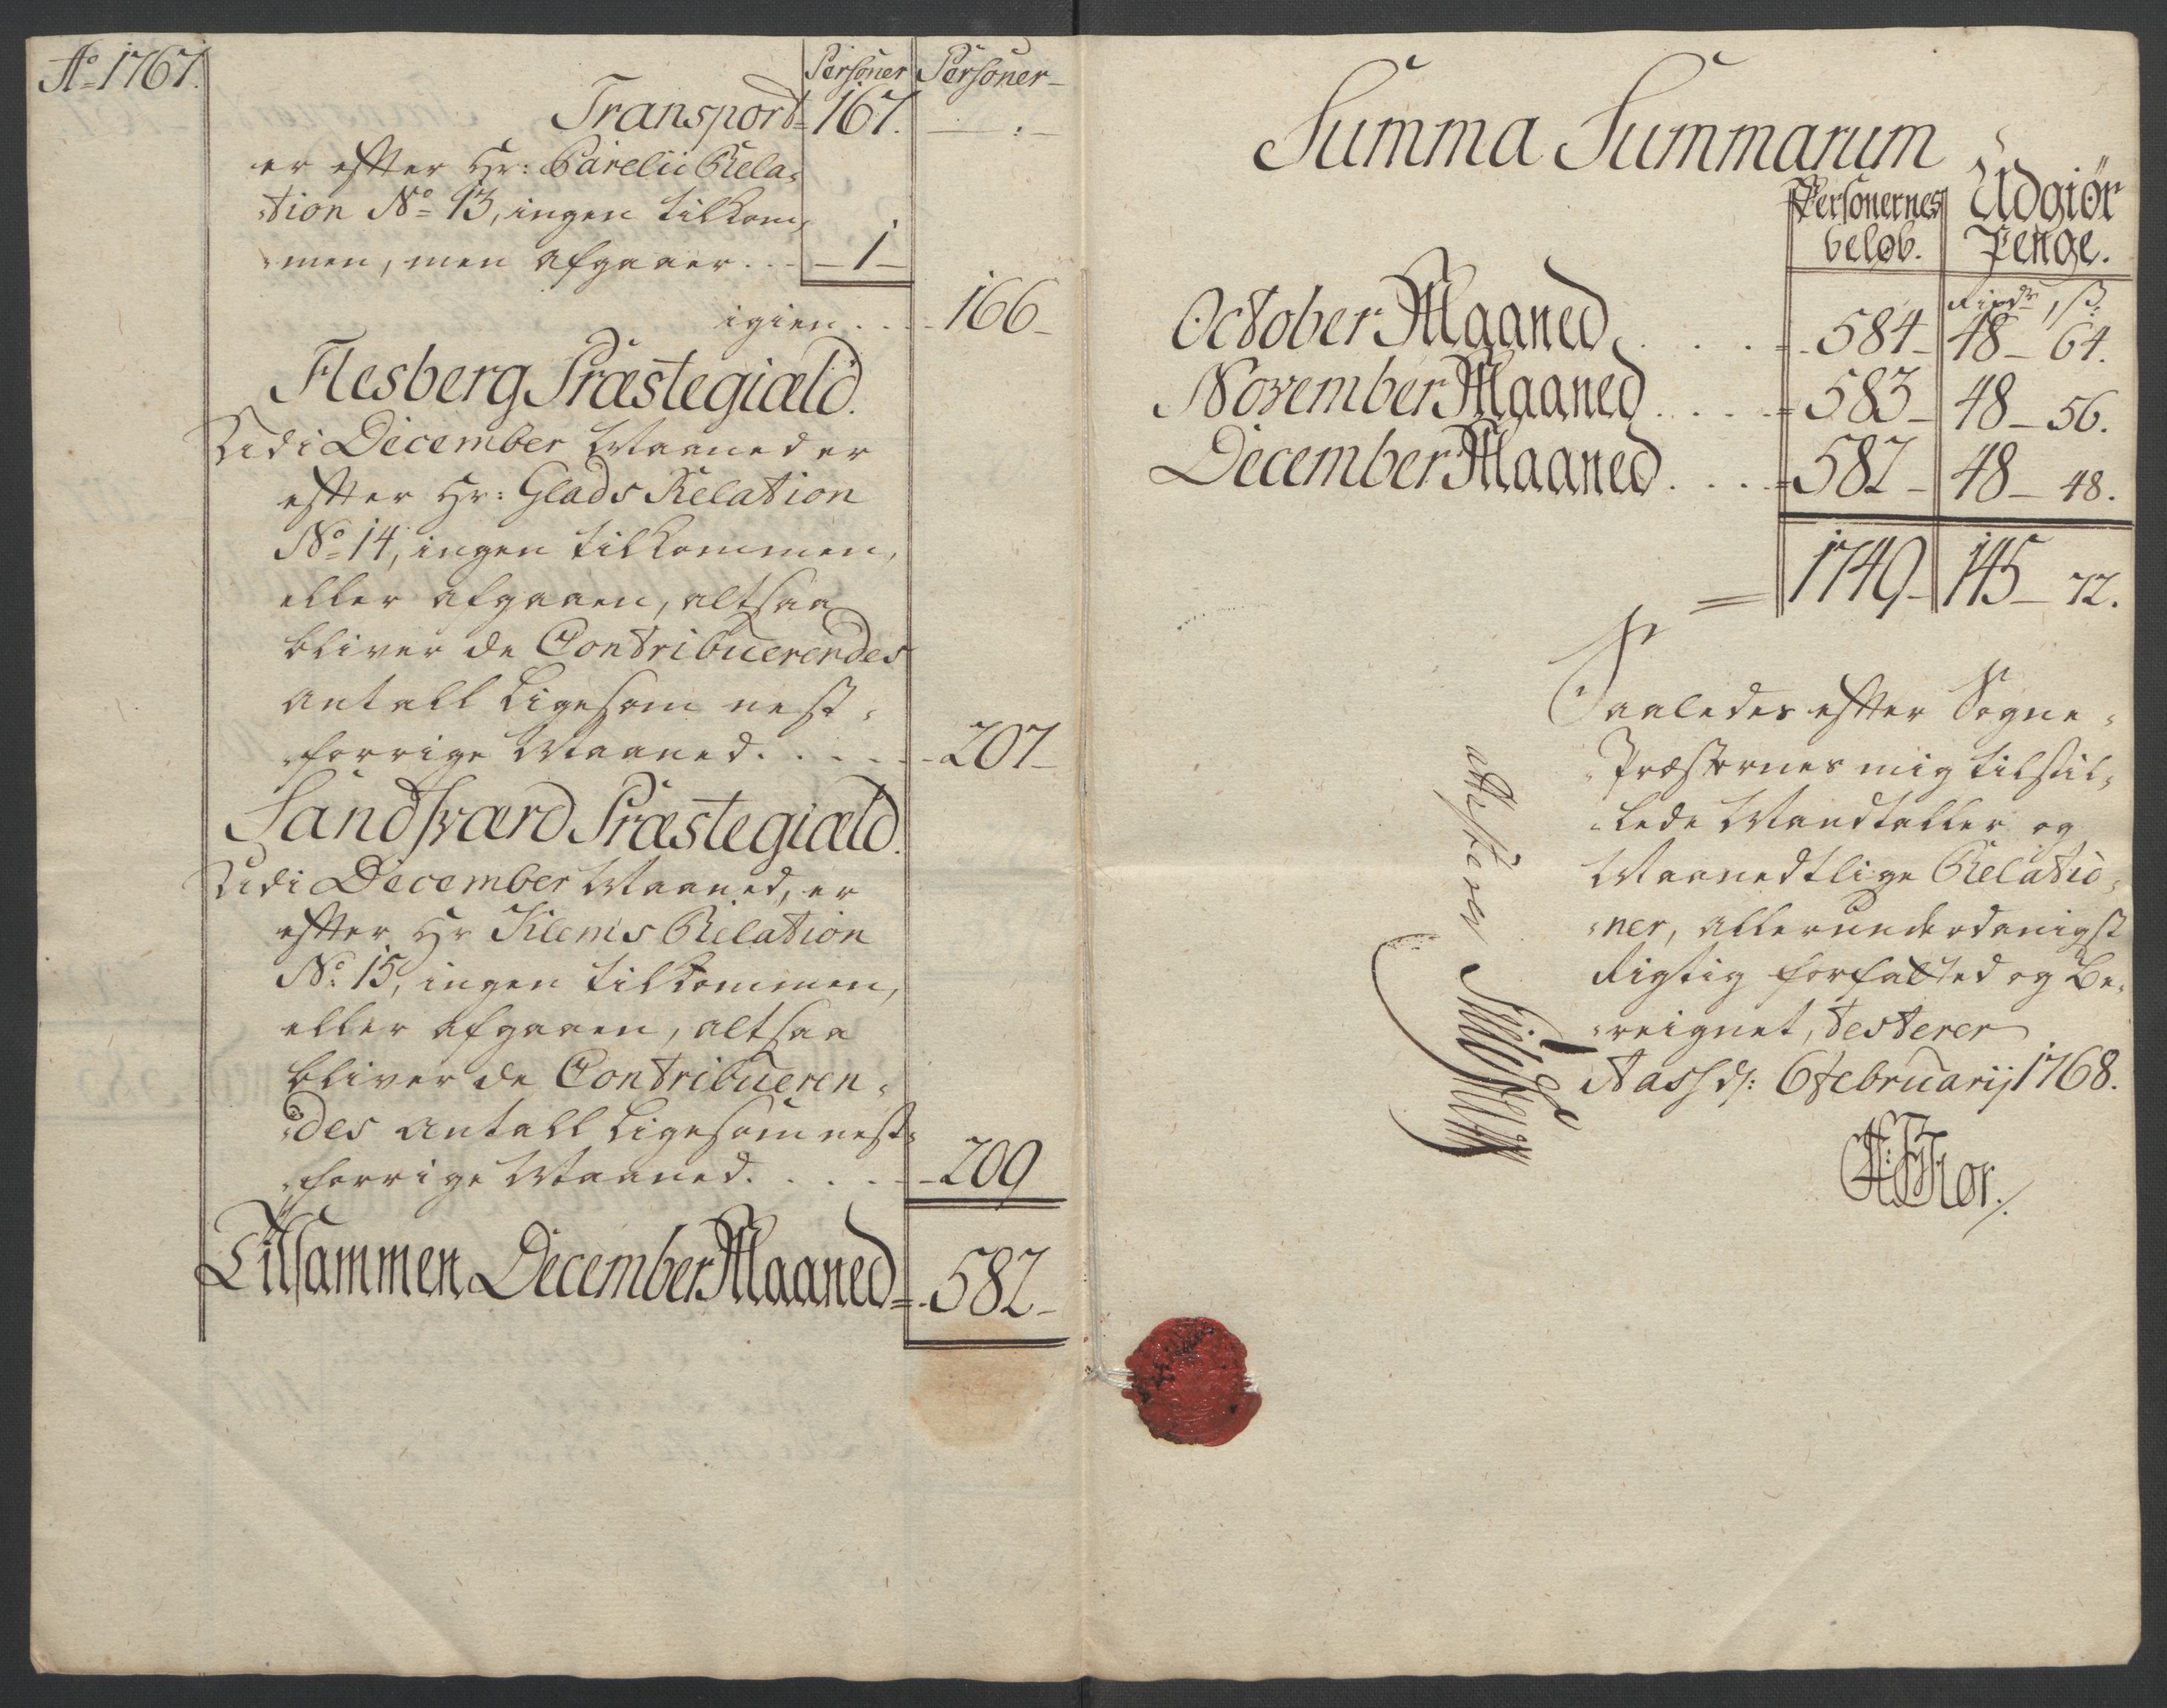 Ao 1767.
Personer Personer
Transport 167.
er efter Hr: Barelii Rela-
tion No 13, ingen tilkom-
men, men afgaaer . . 1
igien . . . 166
Flesberg Præstegiæld.
Udi December Maaned er
efter Hr: Glads Relation
No 14, ingen tilkommen,
eller afgaaen, altsaa
bliver de Contribuerendes
Antall ligesom nest-
forrige Maaned . . . . 207
Sandsværd Præstegiæld.
Udi December Maaned, er
efter Hr Klems Relation
No: 15, ingen tilkommen,
eller afgaaen, altsaa
bliver de Contribueren-
des Antall ligesom nest-
forrige Maaned . . . . 209
Tilsammen December Maaned 582
Summa Summarum
Personernes beløb. Udgiør Penge.
Rixdr ß
October Maaned . . . . 584 48 64.
November Maaned . . . . 583 48 56.
December Maaned . . . . 582 48 48.
1749 145 72.
Saaledes efter Sogne-
Præsternes mig tilstil-
lede Mandtaller og
Maanedtlige Relatio-
ner, allerunderdanigst
Rigtig forfatted og Be-
reignet, testerer
Aass d: 6 Februarij 1768.
atesterer